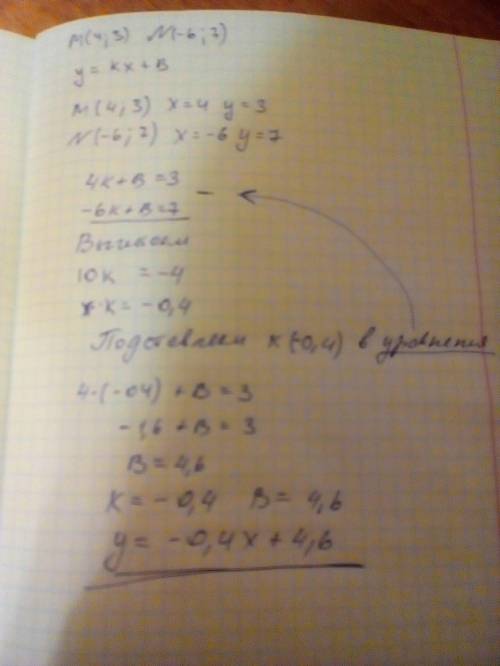 M(4;3) N(-6;7)
y = kx+B
M(4;3) x=4 y=3
N(-6;7) x=-6 y=7
4k+B=3
-6k+B=7 -
10k = -4
k = -0,4
Подставляем k(-0,4) в уровнения
4·(-04)+B=3
-1,6+B=3
B=4,6
k=-0,4 B=4,6
y= -0,4x+4,6